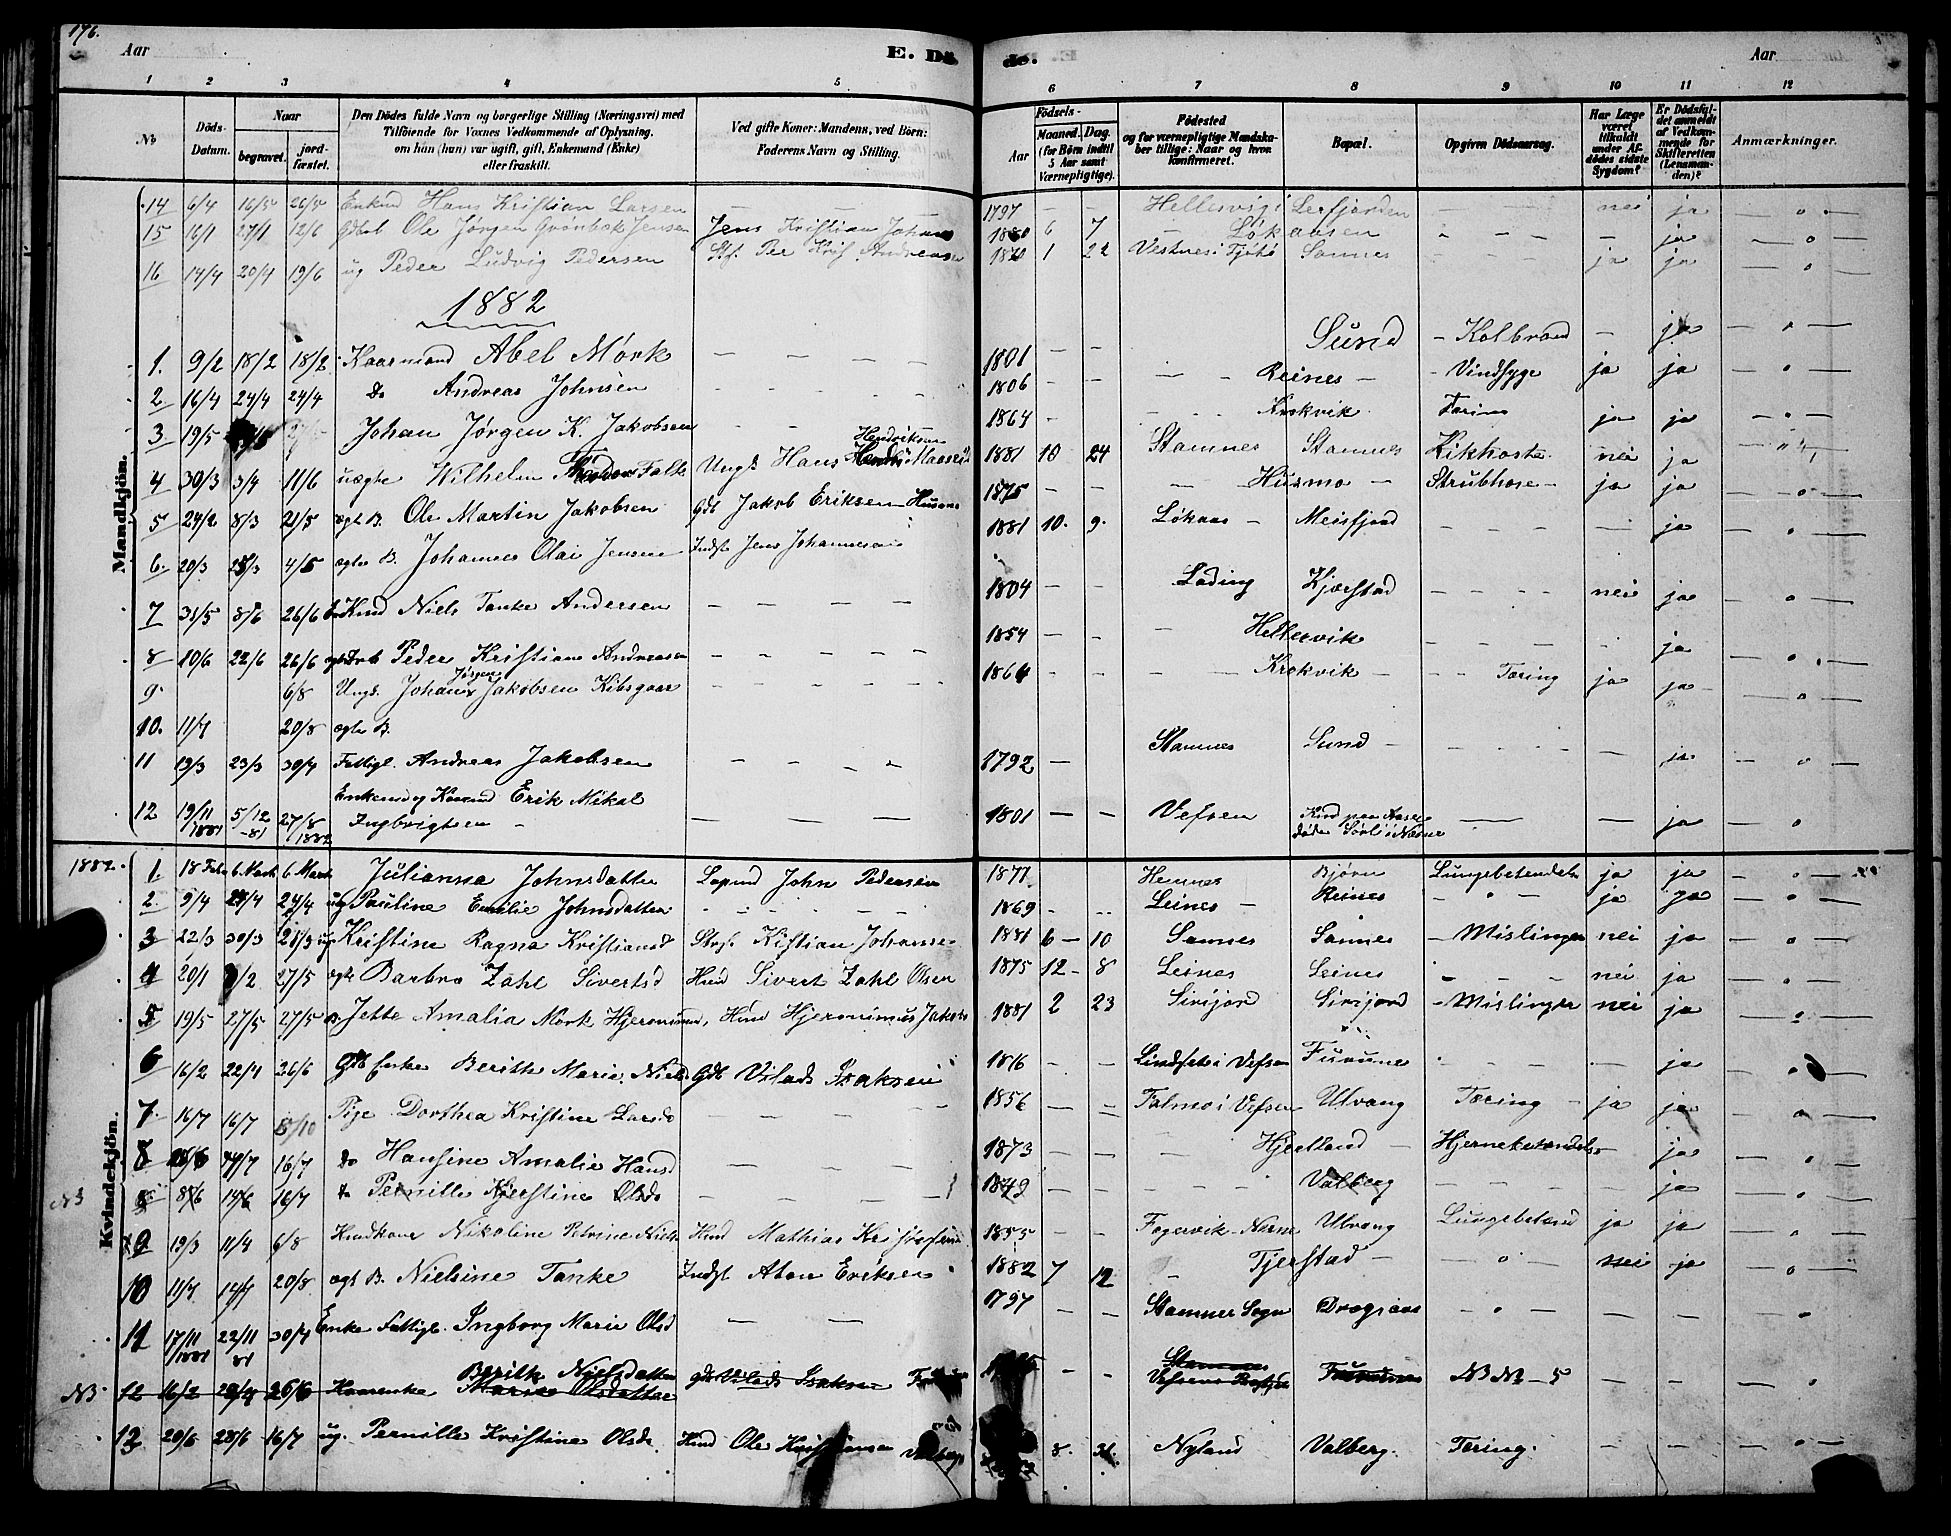 176.
Aar E. Dö de. Aar
1 2 3 4 5 6 7 8 9 10 11 12
No Döds-Datum. Naar begravet. jord-fæstet. Den Dödes fulde Navn og borgerlige Stilling (Næringsvei) med Tilföiende for Voxnes Vedkommende af Oplysning, om han (hun) var ugift, gift, Enkemand (Enke) eller fraskilt. Ved gifte Koner: Mandens, ved Börn: Faderens Navn og Stilling. Födsels- Aar Maaned. Dag. (for Börn indtil 5 Aar samt Værnepligtige). Födested og for værnepligtige Mandskaber tillige: Naar og hvor konfirmeret. Bopæl. Opgiven Dödsaarsag. Har Læge været tilkaldt under Afdödes sidste Sygdom? Er Dödsfaldet anmeldt af Vedkommende for Skifteretten (Lensmanden)? Anmærkninger.
Mandkjön.
14 6/4 16/5 26/5 Enkmd Hans Kristian Larsen — — 1797 — — Hellesvig i Leirfjorden — — nei ja — " —
15 16/1 27/1 12/6 Ole Jørgen Grønbæk Jensen Jens Kristian Johans 1880 6 7 — Løkaasen — — — ja — " —
16 14/4 20/4 19/6 ug Peder Ludvig Pedersen Per Krist. Andreasen 1 22 Vestnes i Tjøtø Sannes — — ja ja — " —
1882
1. 9/2 18/2 18/2 Kaarmand Abel Mörk — — 1801 — — Sund — Kolbrand — ja — " —
2. 16/4 24/4 24/4 do Andreas Johnsen — — 1806 — — — Reines — Vindsyge ja ja — " —
3 19/5 Johan Jørgen K. Jakobsen — — 1864 — — Krokvik Tæring ja ja — " —
4 30/3 3/4 11/6 uægte Wilhelm Falk Ungk Hans Hendriksen 1881 10 24 Stamnes Stamnes Kikhoste nei ja
5 24/2 8/3 21/5 ægte B. Ole Martin Jakobsen Gdb Jakob Eriksen Husmo 1875 — — — Husmo — Strubhose — ja ja — " —
6. 20/3 25/3 4/5 ægte B. Johannes Olai Jensen Indst Jens Johannesen 1881 10. 9. Løkaas — Meisfjord — — — ja — " —
7 31/5 8/6 26/6 Niels Tanke Andersen — — — — 1804 — — Löding Kjærstad — — — nei ja — " —
8 10/6 22/6 26/6 Peder Kristian Andreasen — — — — 1854 — — — Hellesvik — — — ja — " —
9. 6/8 Ungk. Johan Jørgen Jakobsen Kibsgaar — — — — 1864 — — Krokvik — — Tæring ja ja — " —
10. 11/7 20/8 ægte B.
11 19/3 23/3 30/4 Fattigl. Andreas Jakobsen — — — — 1792 — Stamnes Sund — — — ja — " —
12 19/11 /1881 5/12 -81 27/8 /1882 Enkemd og Kaarmd Erik Mikal Ingbrigtsen — — — — 1801 — — Vefsen — — ja — "
Kvindekjön.
1882. 1. 18 Febr 6 Marts 6 Marts Julianna Johnsdatter Lapmd John Pedersen 1877 Hemnes Bjørn Lungebetændels ja ja — " —
2. 9/4 24/4 24/4 ug. Pauline Emilie Johnsdatter — — — 1869 — — Leines — Reines — " — ja ja — " —
3 22/3 30/3 21/3 ug Kristine Ragna Kristiansd Strs. Kistian Johanse 1881 6 — 10 Sannes Sannes — Mislinger nei ja — " —
4 20/1 /2 27/5 ægte Barbra Zahl Sivertsd Hmd Sivert Zahl Olsen 1875 12 — 8 Leines Leines — — nei ja — " —
5 19/5 27/5 27/5 B. Jette Amalia Mørk Hjeronimusd, Hmd Hjeronimus Jakobs 1881 2 23 Sirijord Sirijord — Mislinger nei ja — " —
6 16/2 22/4 26/6 Gdb Enke Berithe Marie Niels Gdb Vilads Isaksen 1816 — — Lindseth i Vefsn Furuune — — — ja — " —
7. 16/7 16/7 8/10 Pige Dorthea Kristine Larsd — — — — 1856 — — Falmo i Vefsen Ulvang Tæring — ja ja — " —
8 4/7 16/7 do Hansine Amalie Hansd — — — 1873 — — — Hjertland — Hjernebetændels — ja — " —
NB 8 8/6 14/6 16/7 do Pernille Kjerstine Olsd — — — — 1849 — — — — Valberg — — — ja — " —
9 19/3 11/4 6/8 Hmdkone Nikoline Petrine Niels Hmd Mathias Kristofersen 1855 — — Fagervik Nesne Ulvang Lungebetænd ja ja — " —
10 11/7 14/7 20/8 ægt B. Nielsine Tanke Indst Aton Eriksen 1882 7 12 — Tjerstad — — " — nei ja — " —
11 17/11 /1881 22/11 81 30/4 Enke Fattigl. Ingborg Marie Olsd — — 1797 — — Stamnes Sogn — " — — — "
NB 12 16/2 22/4 26/6 Kaarenke Berith Nielsdatter Marie Olsdatter gdb Vilads Isaksen — — Stamnes Furuunes NB No — 5 — — — " —
12 20/6 28/6 16/7 ug. Pernille Kristine Olsd. Hmd Ole Kristiansen Valberg 8. Nyland Valberg. Tæring. — — — " —